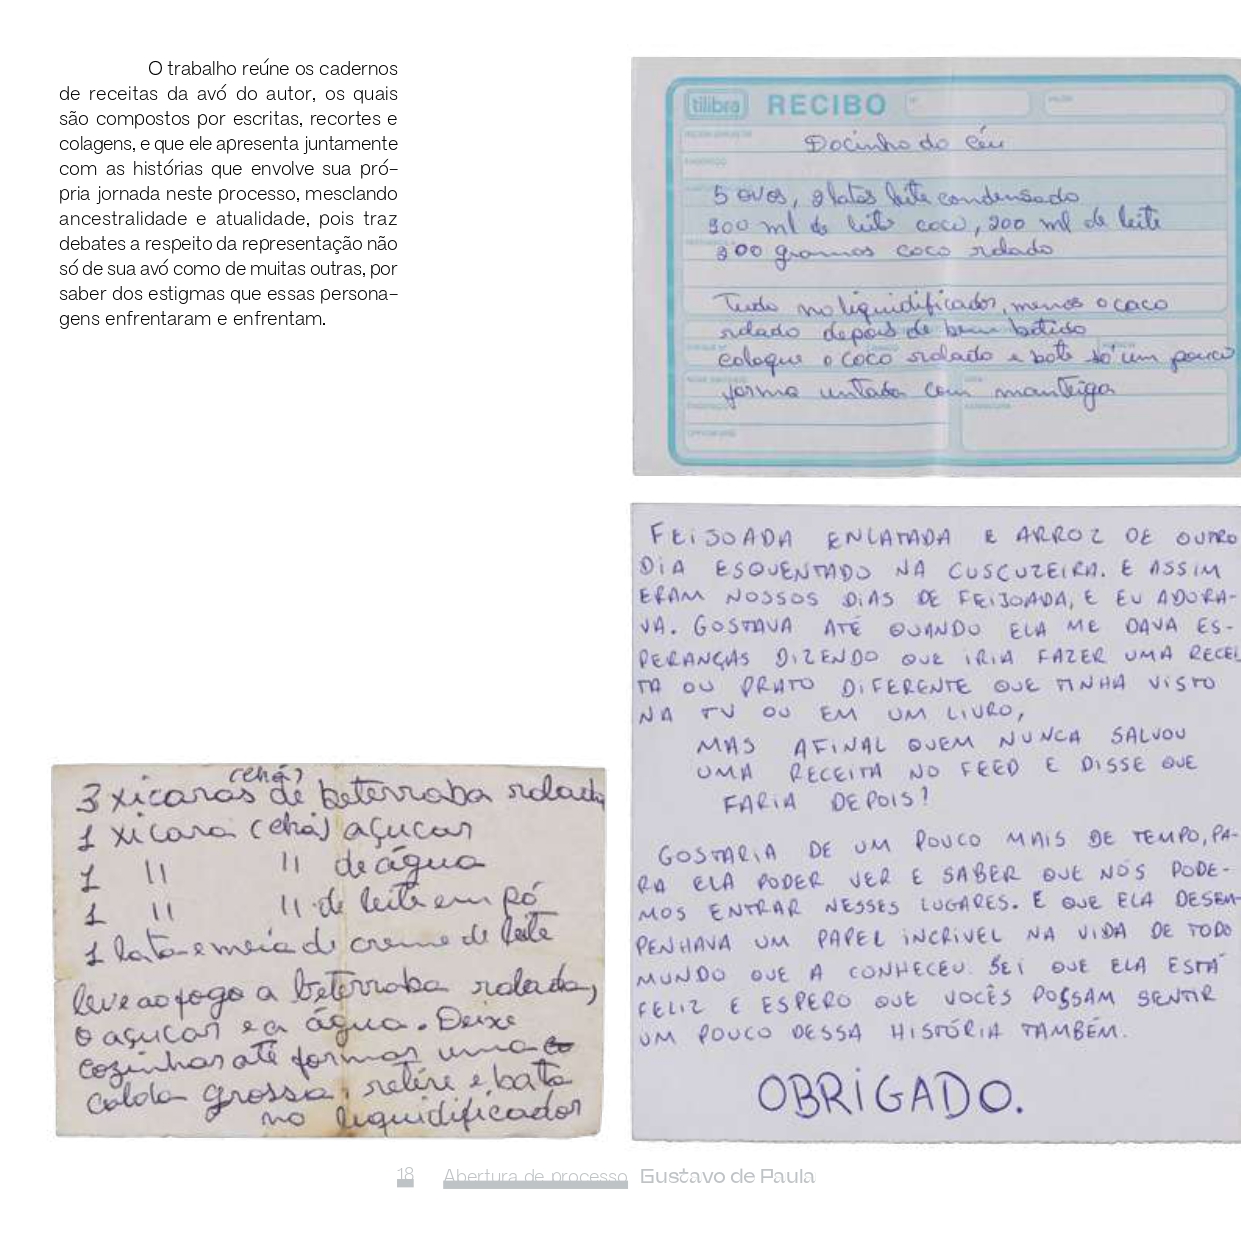 O trabalho reúne os cadernos
de receitas da avó do autor, os quais
são compostos por escritas, recortes e
colagens, e que ele apresenta juntamente
com as histórias que envolve sua pró-
pria jornada neste processo, mesclando
ancestralidade e atualidade, pois traz
debates a respeito da representação não
só de sua avó como de muitas outras, por
saber dos estigmas que essas persona-
gens enfrentaram e enfrentam.
tilibra RECIBO
Docinho do Céu
5 ovos, 2 latas leite condensado
300 ml de leite coco, 200 ml de leite
200 gramas coco ralado
Tudo no liquidificador, menos o coco
ralado depois de bem batido
coloque o coco ralado e bate só um pouco
forma untada com manteiga
FEIJOADA ENLATADA E ARROZ DE OUTRO
DIA ESQUENTADO NA CUSCUZEIRA. E ASSIM
ERAM NOSSOS DIAS DE FEIJOADA, E EU ADORA-
VA. GOSTAVA ATÉ QUANDO ELA ME DAVA ES-
PERANÇAS DIZENDO QUE IRIA FAZER UMA RECEI
TA OU PRATO DIFERENTE QUE TINHA VISTO
NA TV OU EM UM LIVRO,
MAS AFINAL QUEM NUNCA SALVOU
UMA RECEITA NO FEED E DISSE QUE
FARIA DEPOIS?
GOSTARIA DE UM POUCO MAIS DE TEMPO, PA-
RA ELA PODER VER E SABER QUE NÓS PODE-
MOS ENTRAR NESSES LUGARES. E QUE ELA DESEM-
PENHAVA UM PAPEL INCRÍVEL NA VIDA DE TODO
MUNDO QUE A CONHECEU. SEI QUE ELA ESTÁ
FELIZ E ESPERO QUE VOCÊS POSSAM SENTIR
UM POUCO DESSA HISTÓRIA TAMBÉM.
OBRIGADO.
(chá)
3 xicaras de beterraba ralada
1 xicara (chá) açucar
1 " " de água
1 " " de leite em pó
1 lata e meia de creme de leite
leve ao fogo a beterraba ralada,
o açucar e a água. Deixe
cozinhar até formar uma co
calda grossa, retire e bata
no liquidificador
18 Abertura de processo Gustavo de Paula